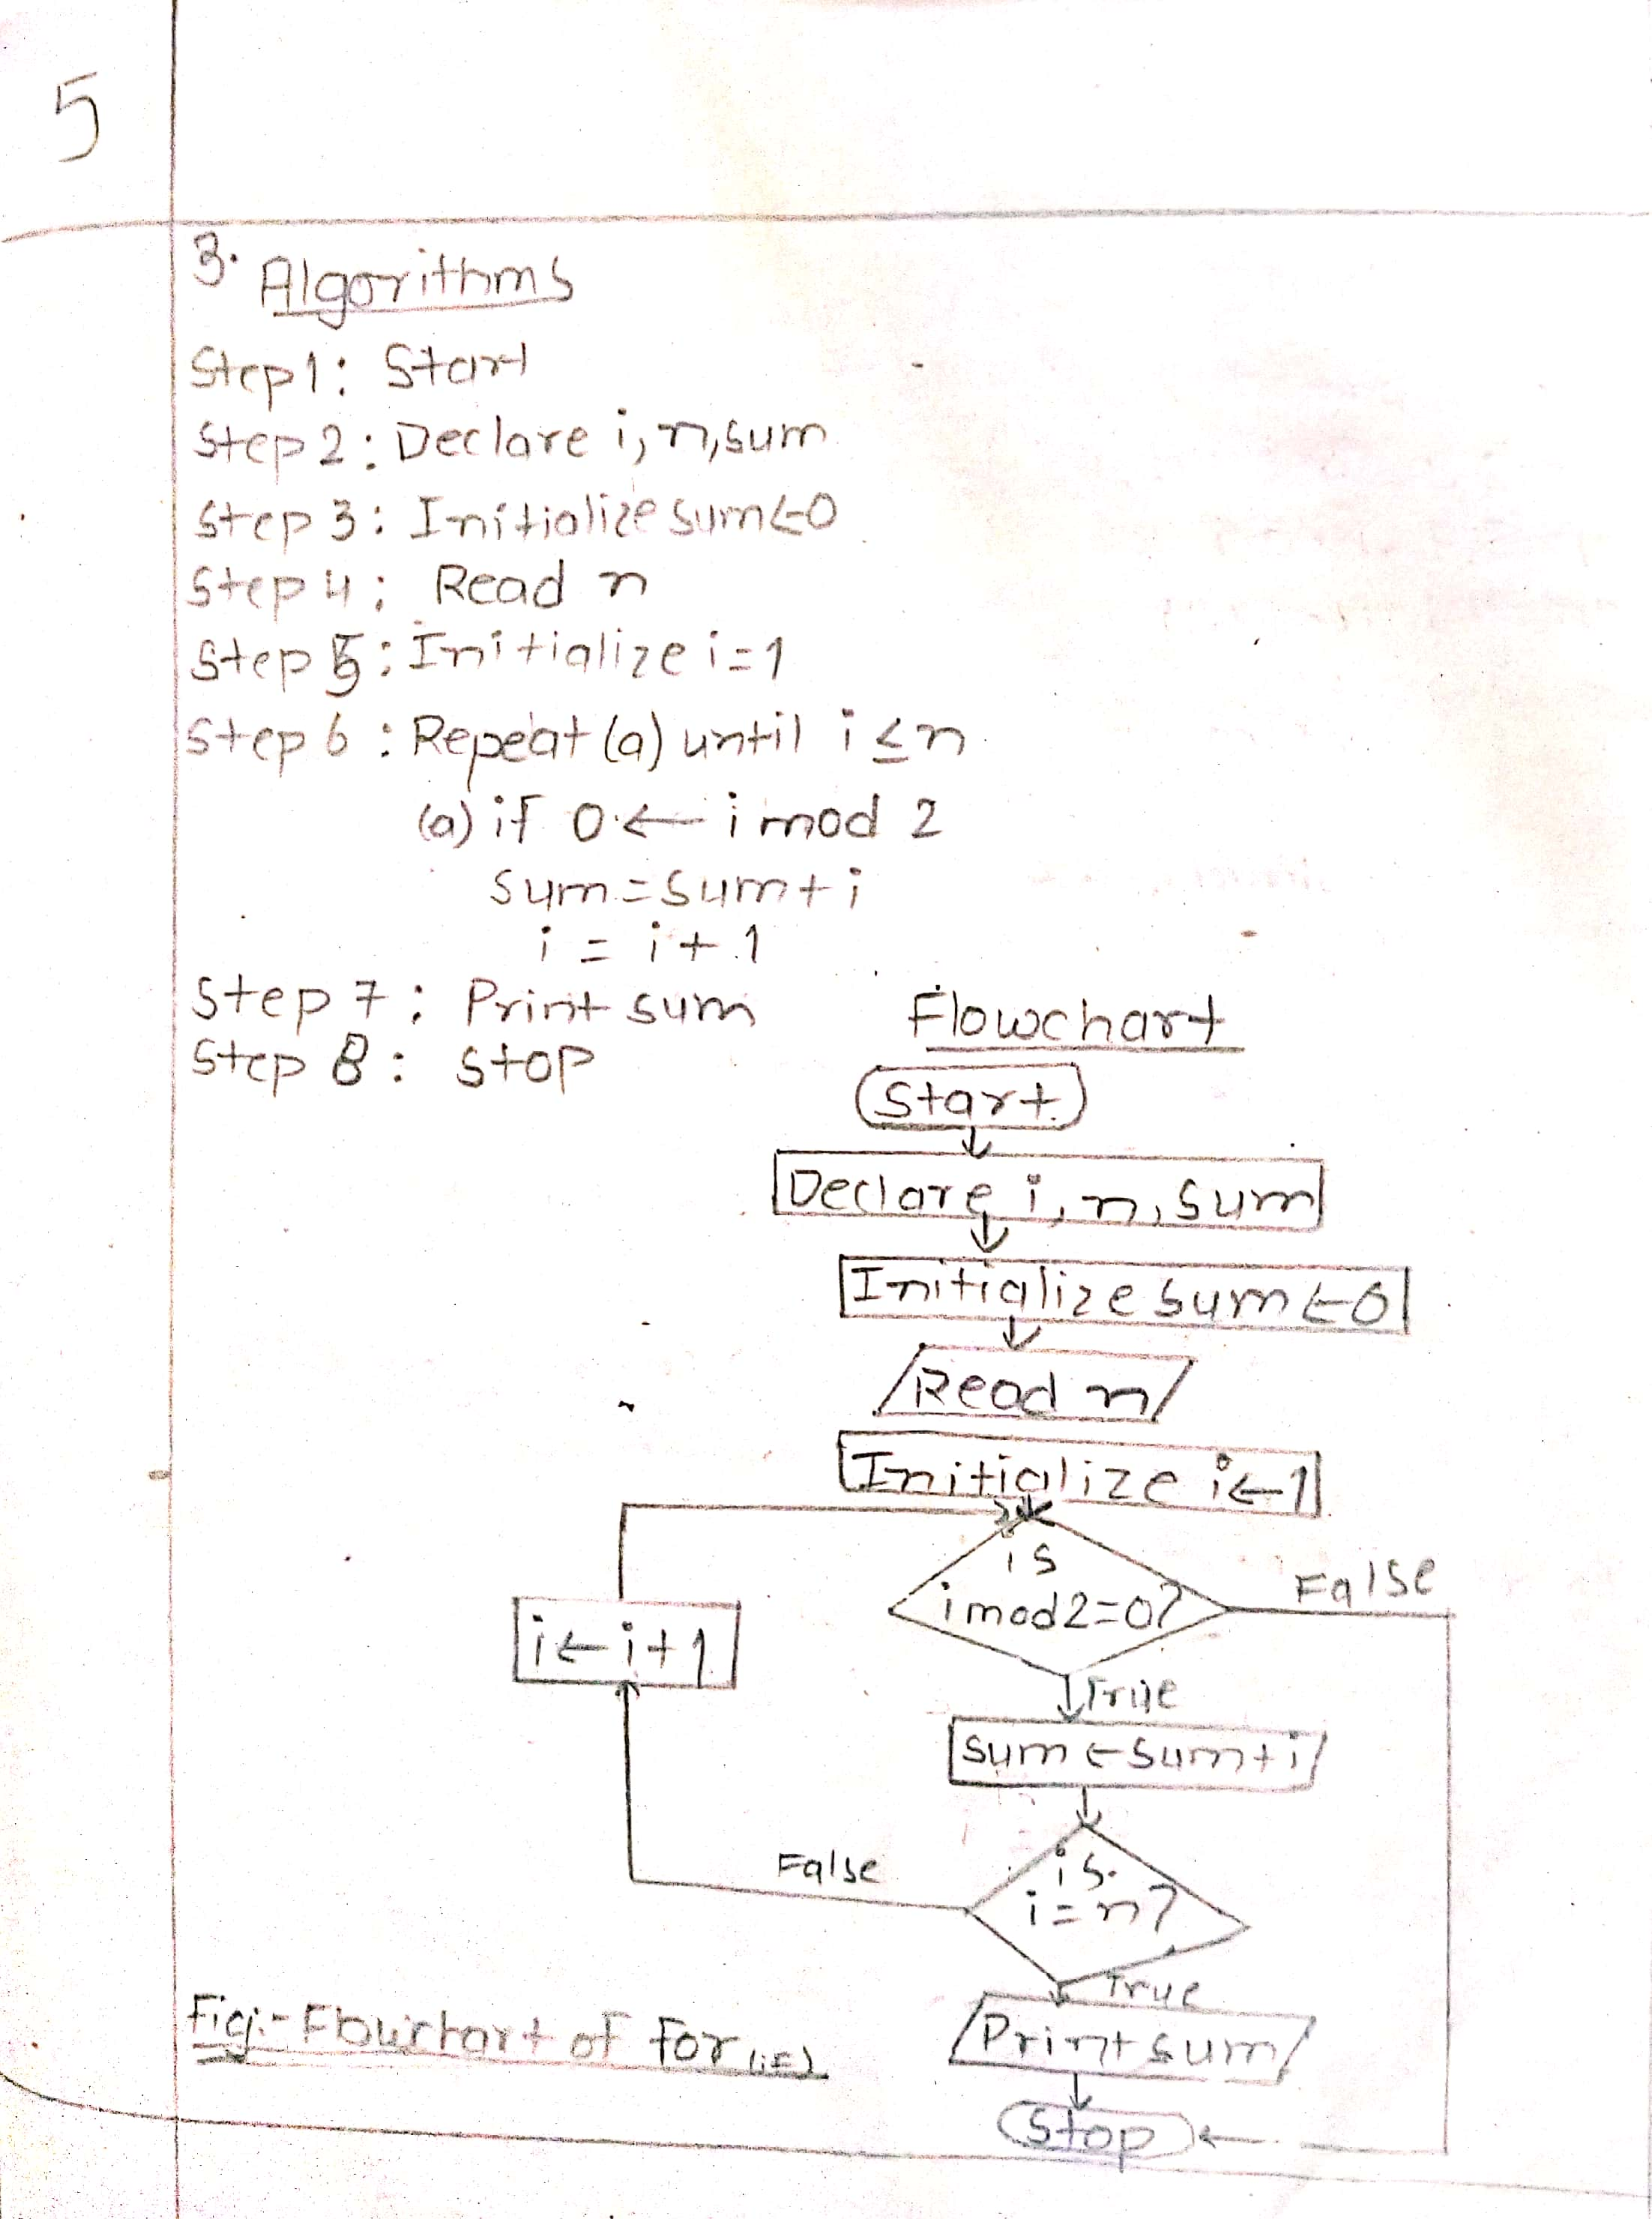 5
3. Algorithms
Step1: Start
Step 2: Declare i, n, sum
Step 3: Initialize sum←0
Step 4: Read n
Step 5: Initialize i=1
Step 6: Repeat (a) until i ≤ n
(a) if 0 ← i mod 2
sum = sum + i
i = i + 1
Step 7: Print sum
Step 8: Stop
Flowchart
Start
Declare i, n, sum
Initialize sum←0
Read n
Initialize i←1
is
i mod 2=0?
False
i←i+1
True
sum←sum+i
is
i=n?
False
True
Print sum
Stop
Fig:- Flowchart of For